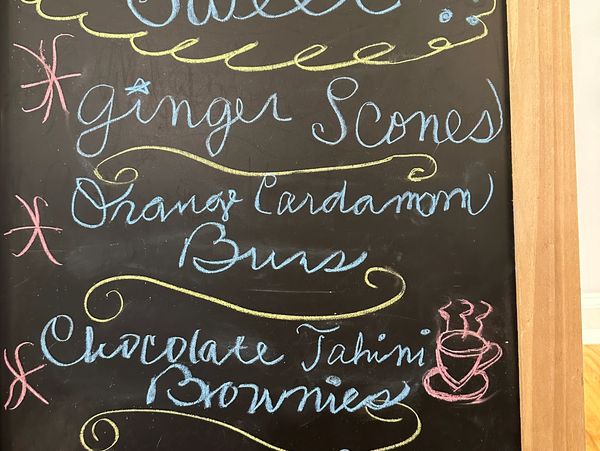 Sweet
ginger Scones
Orange Cardamom
Buns
Chocolate Tahini
Brownies